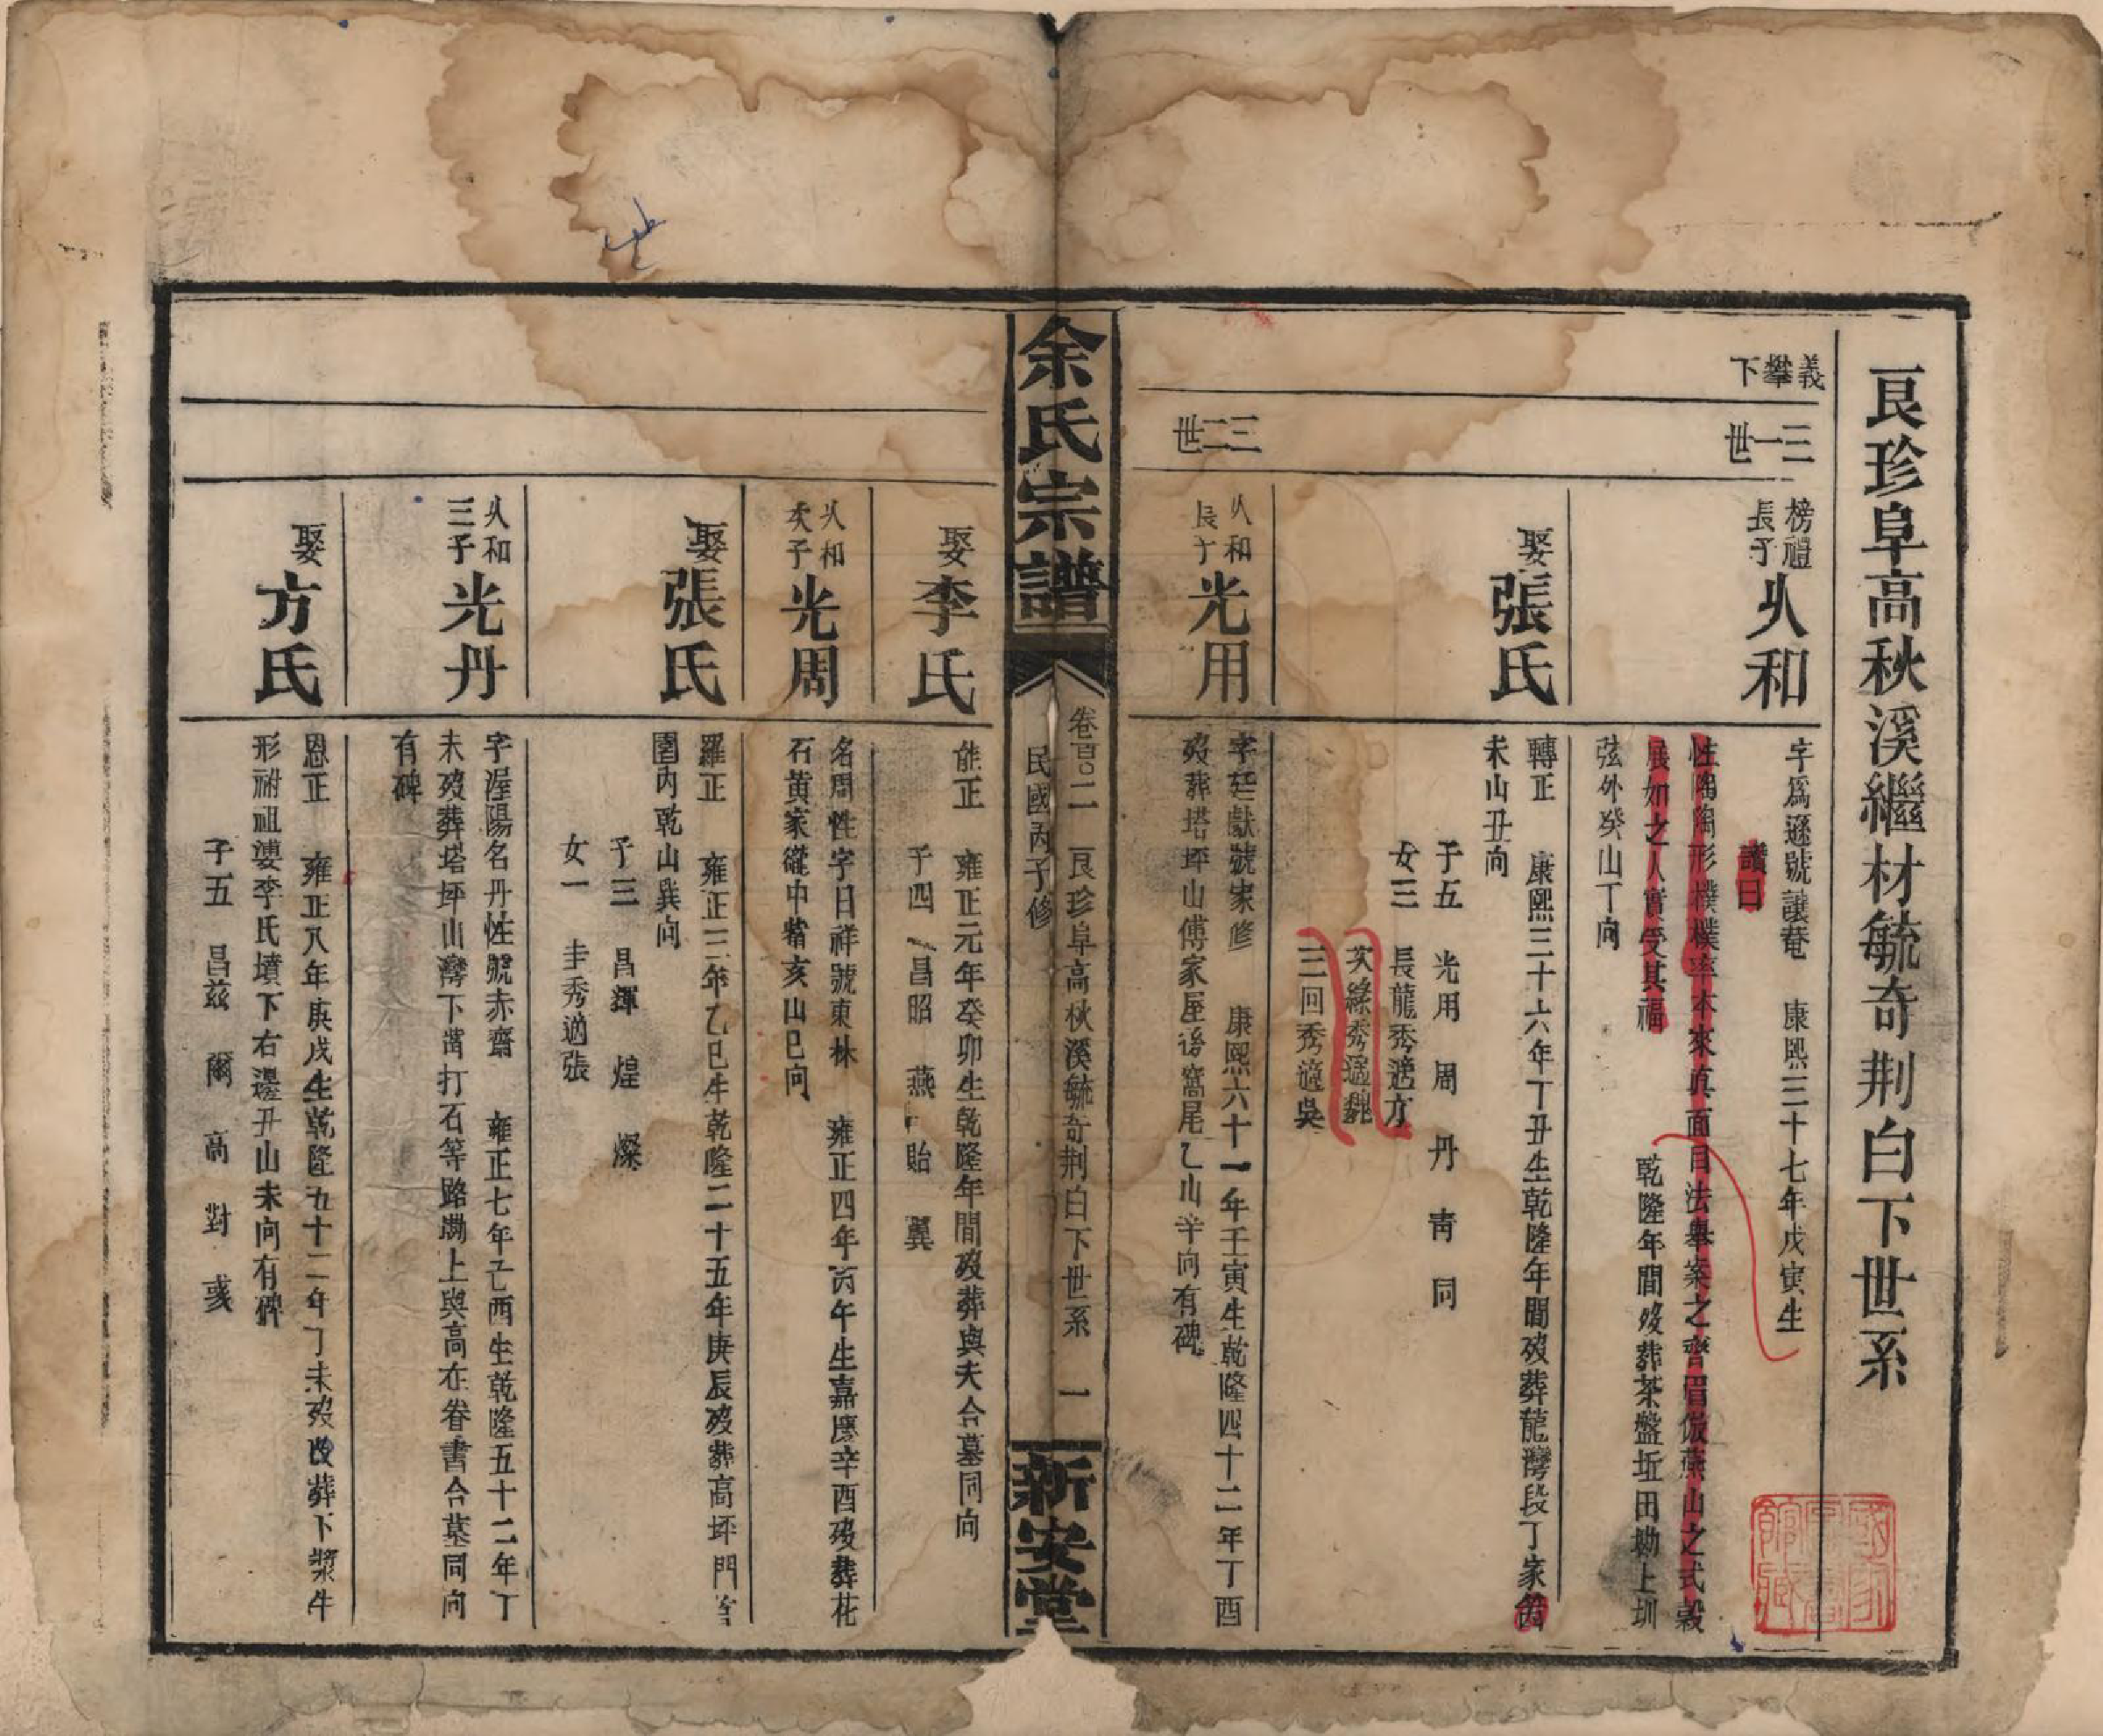 艮珍阜高秋溪繼材毓奇荆白下世系
義攀下
三一世
榜禮長子
火和
字爲遜號讓菴　康熙三十七年戊寅生
讚曰
性陶陶形樸樸率本來眞面目法舉案之齊眉倣燕山之式穀
展如之人實受其福　乾隆年間歿葬茶盤坵田塝上圳
弦外癸山丁向
娶張氏
轉正　康熙三十六年丁丑生乾隆年間歿葬龍灣段丁家
未山丑向
子五　光用　周　丹　青　同
女三　長龍秀適方
次綠秀適魏
三回秀適吳
三二世
火和長子
光用
字廷獻號家修　康熙六十一年壬寅生乾隆四十二年丁酉
歿葬塔坪山傅家屋後窩尾乙山辛向有碑
余氏宗譜
卷百〇二　艮珍阜高秋溪毓奇荆白下世系　一
民國丙子修
新安堂
娶李氏
能正　雍正元年癸卯生乾隆年間歿葬與夫合墓同向
子四　昌昭　燕　貽　翼
火和次子
光周
名周性字日祥號東林　雍正四年丙午生嘉慶辛酉歿葬花
石黄家嶐中觜亥山巳向
娶張氏
羅正　雍正三年乙巳生乾隆二十五年庚辰歿葬高坪門首
園内乾山巽向
子三　昌輝　煌　燦
女一　圭秀適張
火和三子
光丹
字渥陽名丹性號赤齋　雍正七年己酉生乾隆五十二年丁
未歿葬塔坪山灣下凿打石等路塝上與高在眷書合墓同向
有碑
娶方氏
恩正　雍正八年庚戌生乾隆五十二年丁未歿改葬下漿牛
形祔祖婆李氏墳下右邊丑山未向有碑
子五　昌兹　爾　高　對　彧